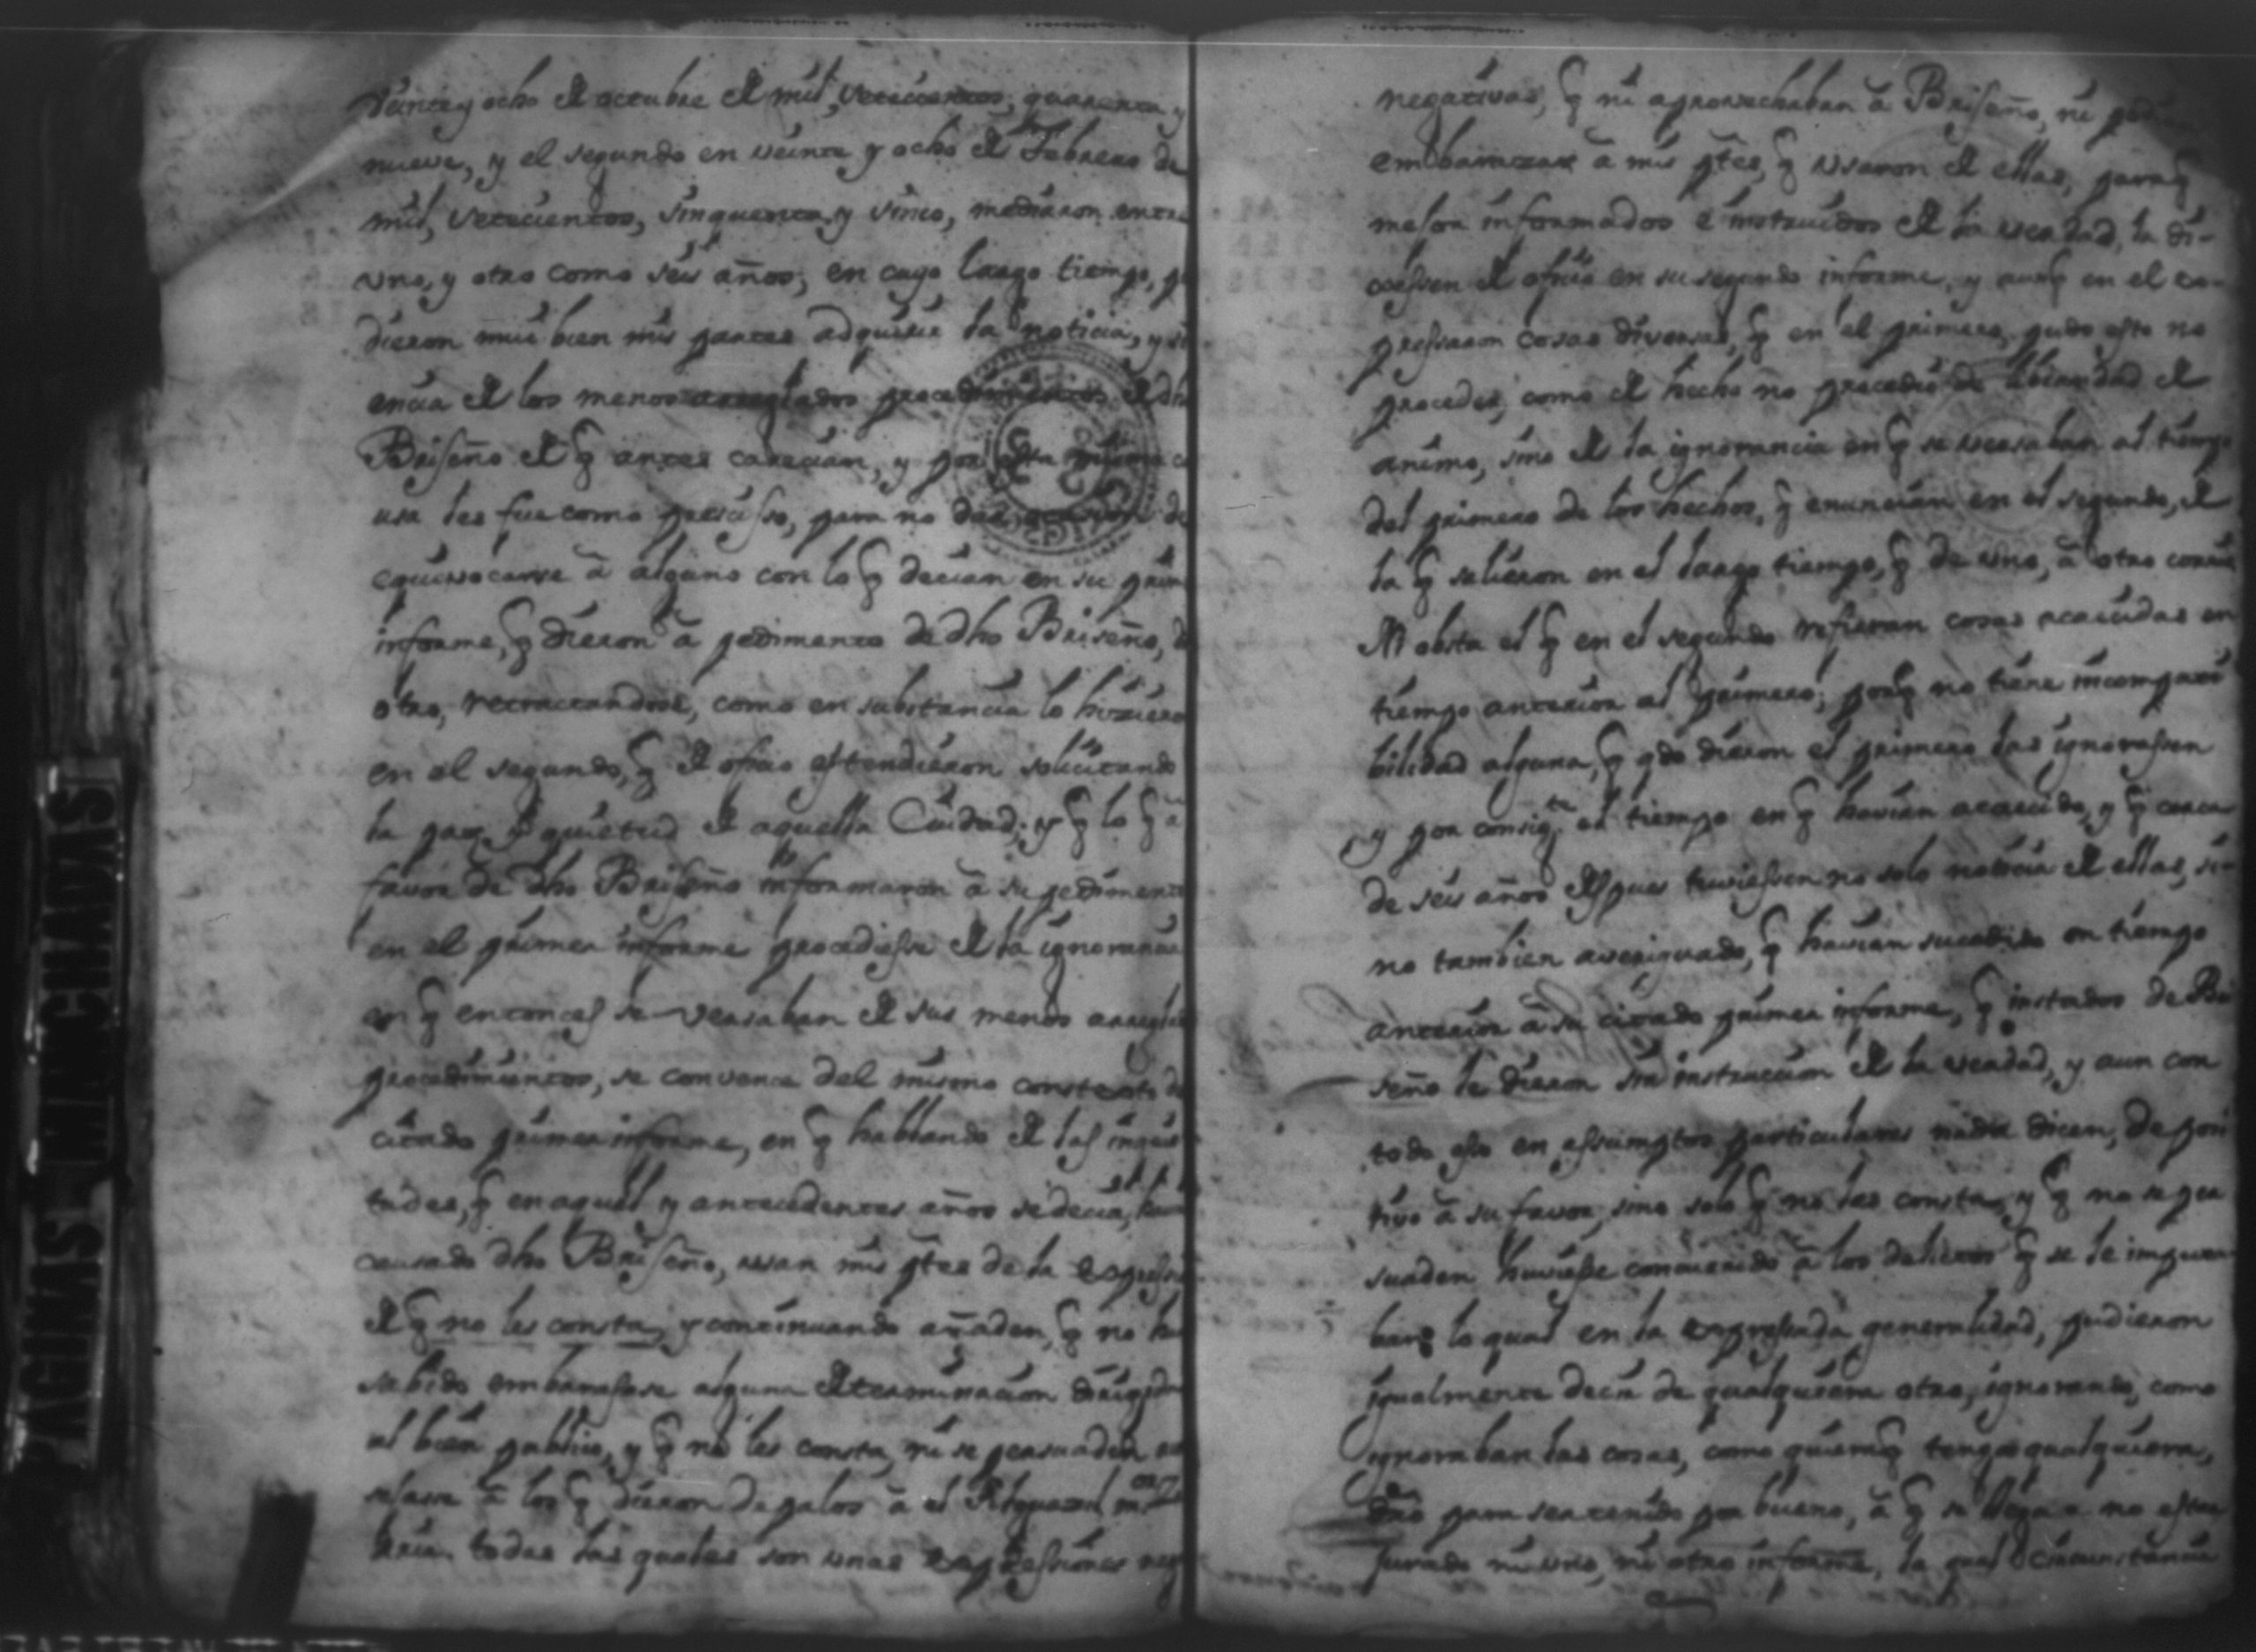 Veinte y ocho de octubre de mil, setecientos, quarenta y
nueve, y el segundo en veinte y ocho de Febrero de
mil, setecientos, sinquenta, y sinco, mediaron entre
uno, y otro como seis años, en cuyo largo tiempo, pu
dieron mui bien mis partes adquirir la noticia, y
encia de los menos arreglados procedimientos de dho
Briseño de q̃ antes carecian, y por
usa les fue como presisso, para no de
equivocarse â alguno con lo q̃ decian en su prim
informe, q̃ dieron â pedimento de dho Briseño, d
otro, retractandose, como en substancia lo hizieron
en el segundo, q̃ de ofisio estendieron solicitando
la paz y quietud de aquella Ciudad; y q̃ lo q̃ â
favor de dho Briseño informaron â su pedimento
en el primer informe procediesse de la ignorancia
en q̃ entonces se versaban de sus menos arregla
procedimientos, se convence del mismo contexto de
citado primer informe, en q̃ hablando de las inquie
tudes, q̃ en aquel y antecedentes años se decia,
causado dho Briseño, usan mis ptes de la expres
de q̃ no les consta, y continuando añaden, q̃ no ha
sabido embarasase alguna determinacion dirigida
al bien publico, y q̃ no les consta, ni se persuaden
â los q̃ dieron de palos â el
todas las quales son unas expressiones neg
negativas, q̃ ni aprovechaban â Briseño, ni pod
embarazar â mis ptes, q̃ usaron de ellas, paraq̃
mejor informados e instruidos de la verdad, la di-
cessen de ofisio en su segundo informe, y aunq̃ en el ex-
pressaron cosas diversas, q̃ en el primero, pudo esto no
proceder, como de hecho no procedio de libiandad de
animo, sino de la ignorancia en q̃ se versaban al tiempo
del primero de los hechos, q̃ enuncian en el segundo, de
la q̃ salieron en el largo tiempo, q̃ de uno, â otro corrio
Ni obsta el q̃ en el segundo refieran cosas acaecidas en
tiempo anterior al primero; porq̃ no tiene incompati
bilidad alguna, q̃ qdo dieron el primero las ignorassen
y por consigte el tiempo en q̃ havian acaecido, y q̃ cerca
de seis años despues tuviessen no solo noticia de ellas, si-
no tambien averiguado, q̃ havian sucedido en tiempo
anterior â su citado primer informe, q̃ instados de Bri
seño le dieron sin instruccion de la verdad, y aun con
todo esso en assumptos particulares nada dicen, de posi
tivo â su favor, sino solo q̃ no les consta, y q̃ no se per
suaden huviesse concurrido â los delictos q̃ se le imputa
ban; lo qual en la expressada generalidad, pudieron
igualmente decir de qualquiera otro, ignorando, como
ignoraban las cosas, como quieraq̃ tenga qualquiera,
dro para ser tenido por bueno, â q̃ se llega no estar
jurado ni uno, ni otro informe, la qual circunstancia
PAGINAS MANCHADAS